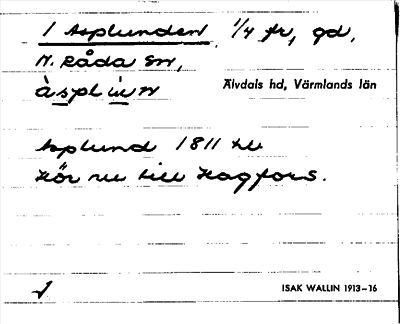 1 Asplunden, 1/4 fr, gd,
N. Råda sn,
Älvdals hd, Värmlands län
Asplund 1811 HL
Hör nu till Hagfors.
ISAK WALLIN 1913–16